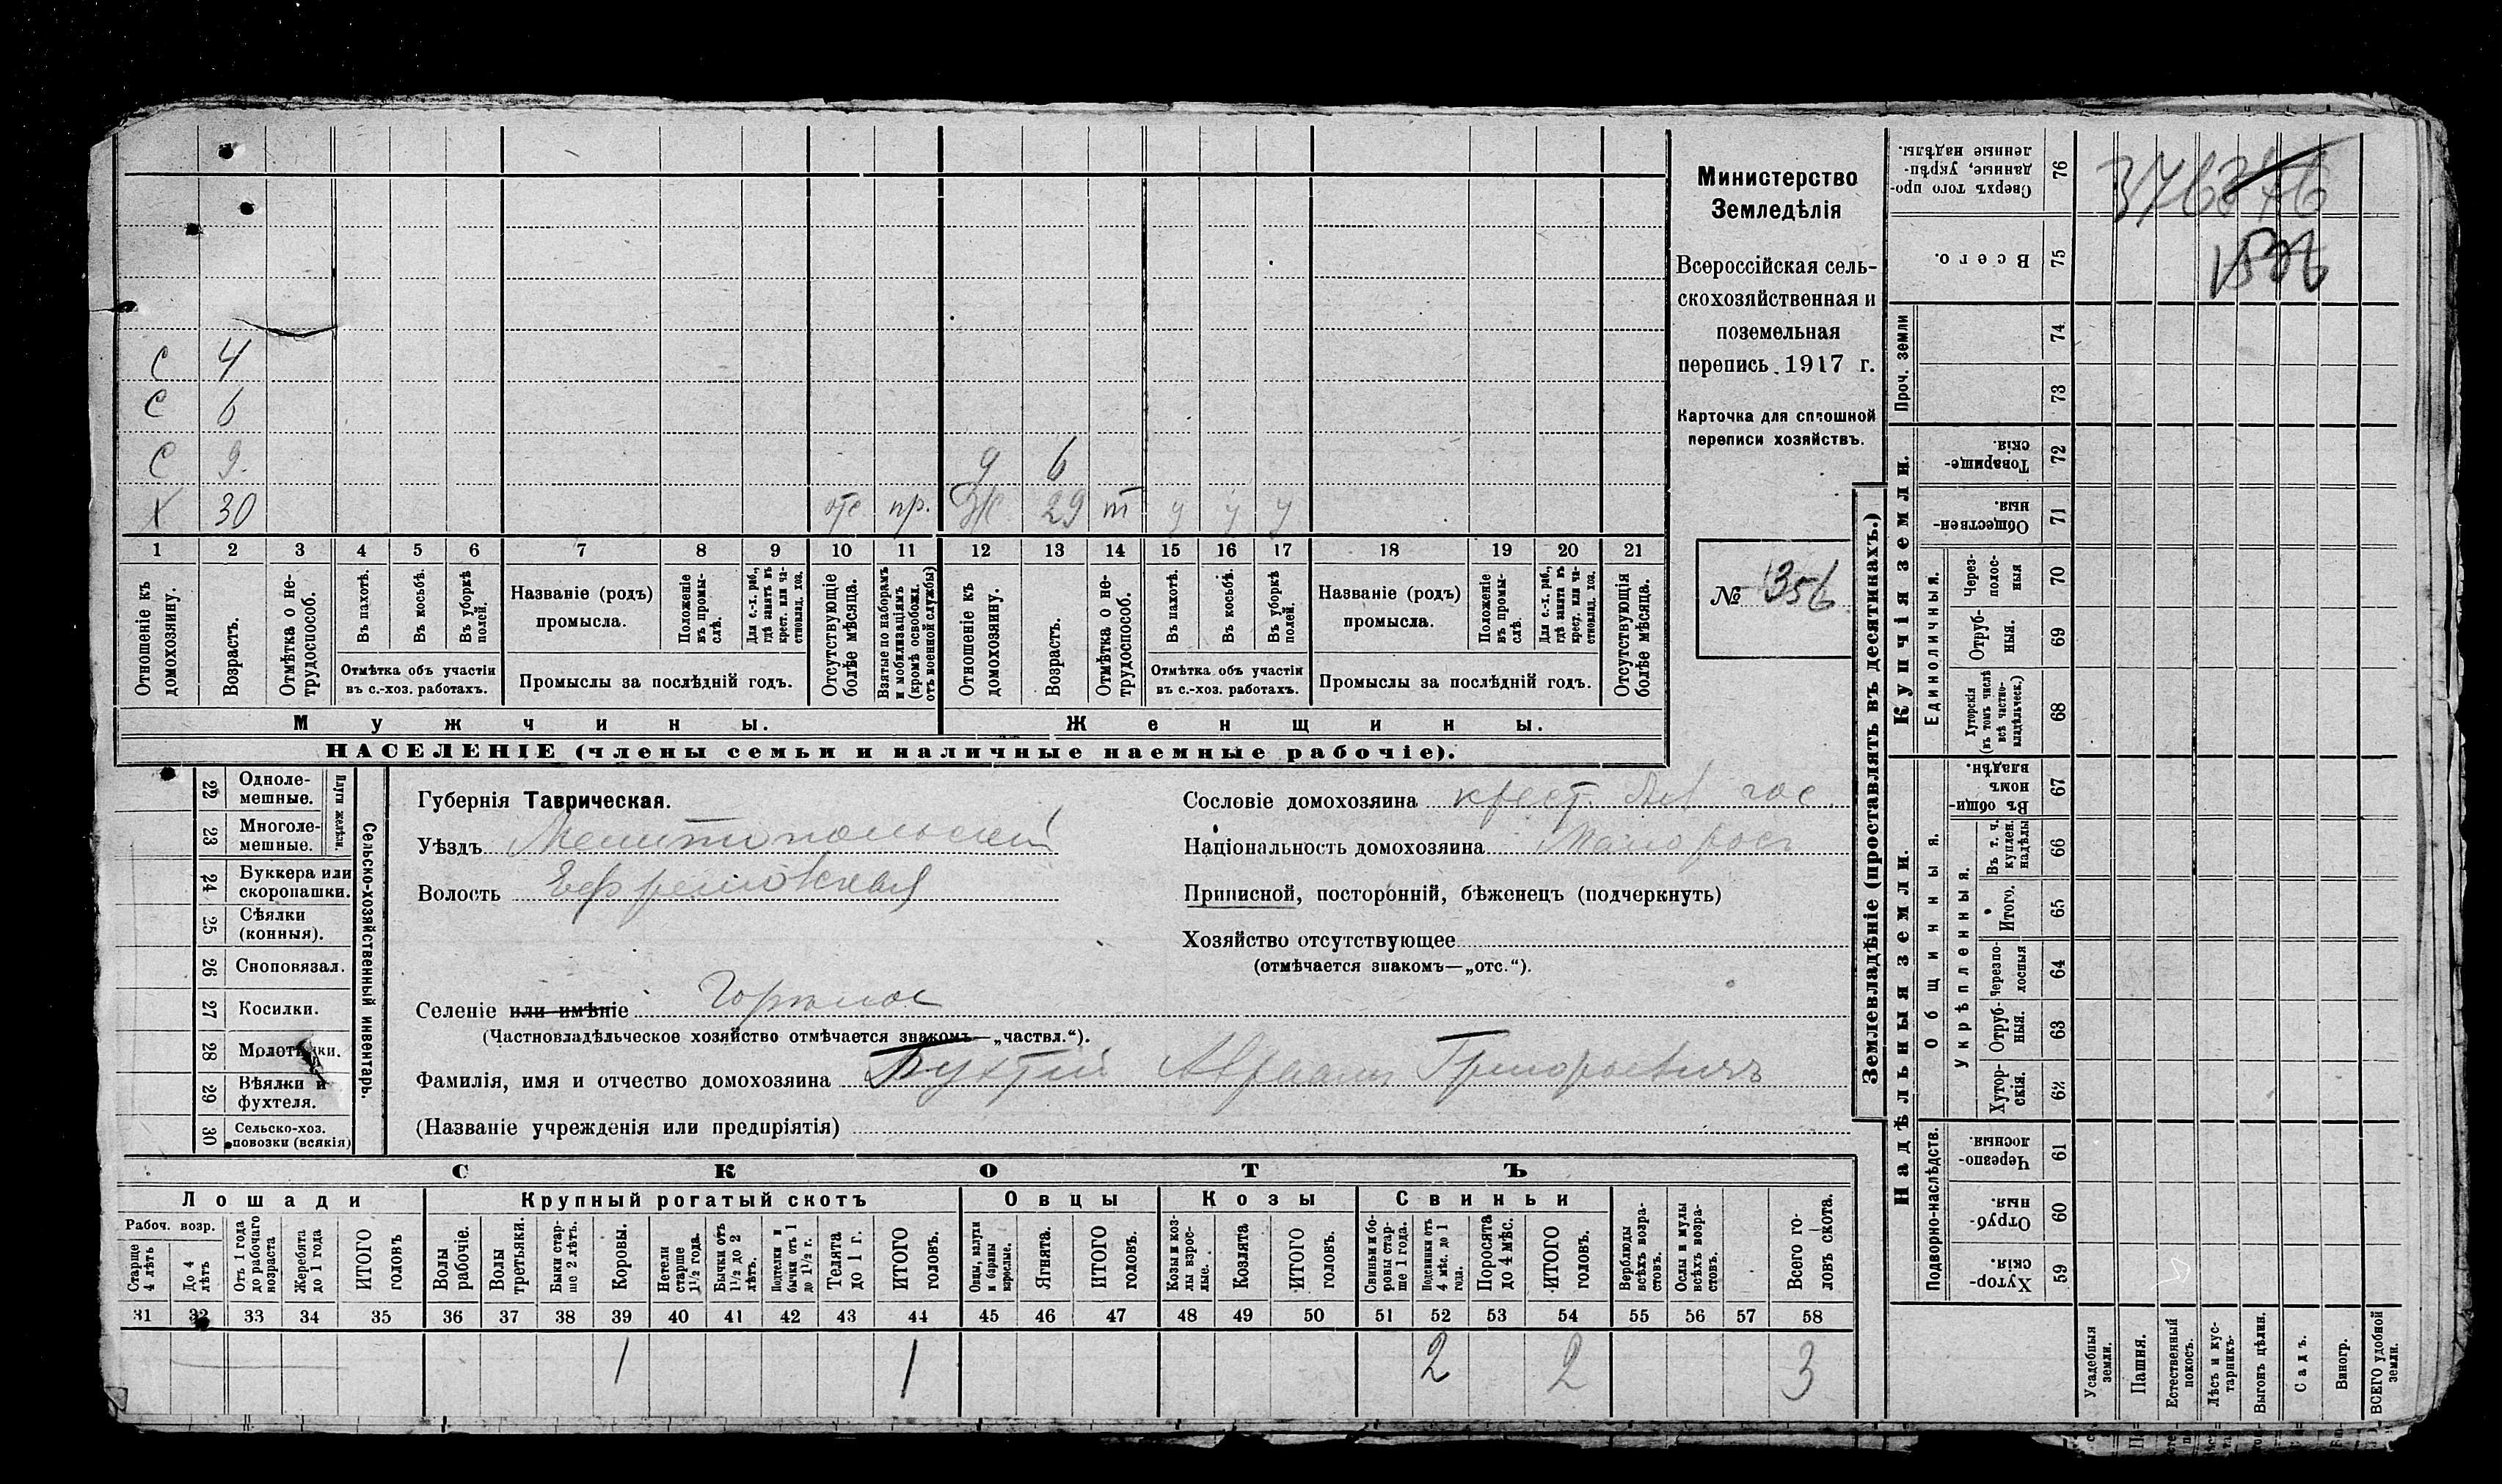 Министерство
Земледѣлія
Всероссійская сель-
скохозяйственная и
поземельная
перепись 1917 г.
Карточка для сплошной
переписи хозяйствъ.
№ 356
С 4
С 6
С 9 д 6
Х 30 отс пр. Ж 29 т у у у
1 2 3 4 5 6 7 8 9 10 11 12 13 14 15 16 17 18 19 20 21
Отношеніе къ домохозяину.
Возрастъ.
Отмѣтка о не-трудоспособ.
Въ пахотѣ.
Въ косьбѣ.
Въ уборкѣ полей.
Отмѣтка объ участіи
въ с.-хоз. работахъ.
Названіе (родъ)
промысла.
Положеніе въ промы-слѣ.
Для с.-х. раб., гдѣ занятъ въ крест. или ча-стновлад. хоз.
Промыслы за послѣдній годъ.
Отсутствующіе болѣе мѣсяца.
Взятые по наборамъ и мобилизаціямъ (кромѣ освобожд. отъ военной службы)
Отношеніе къ домохозяину.
Возрастъ.
Отмѣтка о не-трудоспособ.
Въ пахотѣ.
Въ косьбѣ.
Въ уборкѣ полей.
Отмѣтка объ участіи
въ с.-хоз. работахъ.
Названіе (родъ)
промысла.
Положеніе въ промы-слѣ.
Для с.-х. раб., гдѣ занята въ крест. или ча-стновлад. хоз.
Промыслы за послѣдній годъ.
Отсутствующія болѣе мѣсяца.
Мужчины. Женщины.
НАСЕЛЕНІЕ (члены семьи и наличные наемные рабочіе).
Сельско-хозяйственный инвентарь.
Плуги желѣзн.
22 Одноле-мешные.
23 Многоле-мешные.
24 Буккера или скоропашки.
25 Сѣялки (конныя).
26 Сноповязал.
27 Косилки.
28 Молотилки.
29 Вѣялки и фухтеля.
30 Сельско-хоз. повозки (всякія)
Губернія Таврическая.
Уѣздъ Мелитопольский
Волость Ефремовская
Селеніе или имѣніе Горѣлое
(Частновладѣльческое хозяйство отмѣчается знакомъ—„частвл.“).
Фамилія, имя и отчество домохозяина Авраамъ Григорьевичъ
(Названіе учрежденія или предпріятія)
Сословіе домохозяина крест.
Національность домохозяина Малорос
Приписной, посторонній, бѣженецъ (подчеркнуть)
Хозяйство отсутствующее
(отмѣчается знакомъ—„отс.“).
СКОТЪ
Лошади Крупный рогатый скотъ Овцы Козы Свиньи
Рабоч. возр.
Старше 4 лѣтъ
До 4 лѣтъ
Отъ 1 года до рабочаго возраста
Жеребята до 1 года
ИТОГО головъ
Волы рабочіе.
Волы третьяки.
Быки стар-ше 2 лѣтъ.
Коровы.
Нетели старше 1½ года.
Бычки отъ 1½ до 2 лѣтъ.
Подтелки и бычки отъ 1 до 1½ г.
Телята до 1 г.
ИТОГО головъ.
Овцы, валухи и бараны взрослые.
Ягнята.
ИТОГО головъ.
Козы и коз-лы взрос-лые.
Козлята
ИТОГО головъ.
Свиньи и бо-ровы стар-ше 1 года.
Подсвинки отъ 4 мѣс. до 1 года.
Поросята до 4 мѣс.
ИТОГО головъ.
Верблюды всѣхъ возра-стовъ.
Ослы и мулы всѣхъ возра-стовъ.
Всего го-ловъ скота.
31 32 33 34 35 36 37 38 39 40 41 42 43 44 45 46 47 48 49 50 51 52 53 54 55 56 57 58
1 1 2 2 3
Землевладѣніе (проставлять въ десятинахъ.)
Купчія земли.
Надѣльныя земли.
Проч. земли
Единоличныя.
Общинныя.
Укрѣпленныя.
Подворно-наслѣдств.
76 Сверхъ того про-данные, укрѣп-ленные надѣлы.
75 Всего.
74
73
72 Товарище-скія.
71 Обществен-ныя.
70 Через-полос-ныя
69 Отруб-ныя.
68 Хуторскія (въ томъ числѣ всѣ частно-владѣльческ.)
67 Въ общи-номъ владѣн.
66 Въ т. ч. куплен. надѣлы
65 Итого.
64 Черезпо-лосныя
63 Отруб-ныя.
62 Хутор-скія.
61 Черезпо-лосныя.
60 Отруб-ныя.
59 Хутор-скія.
Усадебныя земли.
Пашня.
Естественный покосъ.
Лѣсъ и кус-тарникъ.
Выгонъ цѣлин.
Садъ.
Виногр.
ВСЕГО удобной земли.
376 376